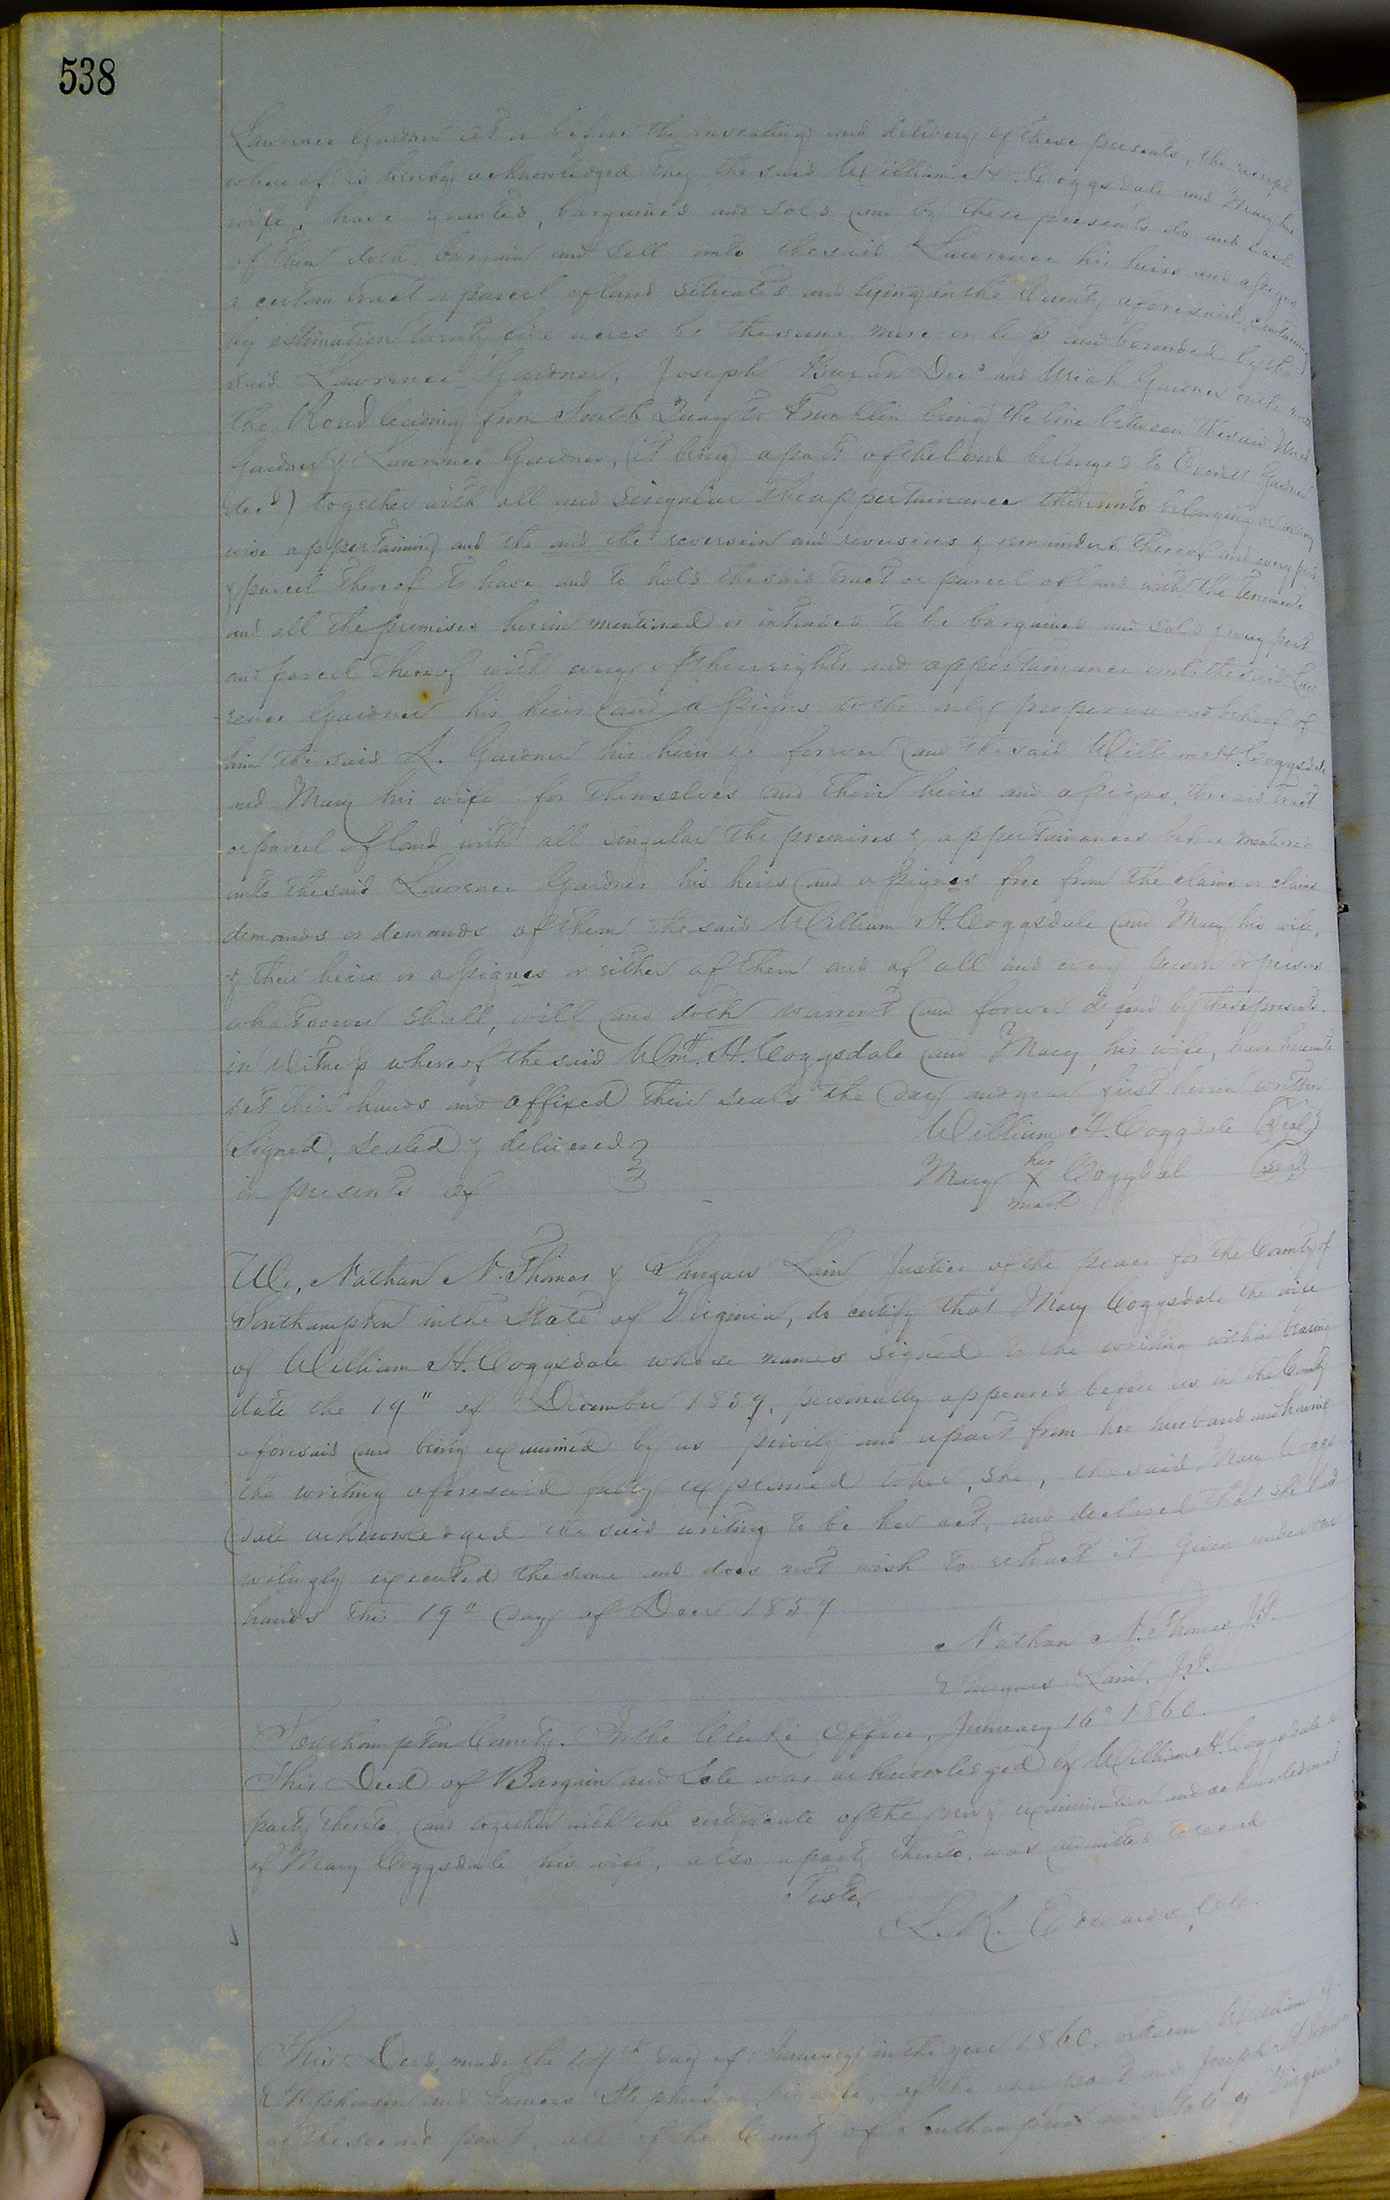 538
Lawrence Gardner at or before the ensealing and delivery of these presents, the receipt
where of is hereby acknowledged they the said William H. Coggsdale and Mary his
wife, have granted, bargained and sold and by these presents do and each
of them doth bargain and sell unto the said Lawrence his heirs and assigns
a certain tract or parcel of land situated and lying in the County aforesaid, containing
by estimation twenty five acres be the same more or less and bounded by the
said Lawrence Gardner, Joseph Decd and Uriah Gardner on the
the Road leading from South Quay to Franklin being the line between the said Uriah
Gardner & Lawrence Gardner, (it being a part of the land belonged to Gardner
decd) together with all and singular the appertainance thereunto belonging or in any
wise appertaining and the and the reversion and reversions & remainders thereof and every part
& parcel thereof to have and to hold the said tract or parcel of land with the tenements
and all the premises herein mentioned or intended to be bargained and sold & every part
and parcel thereof with every of their rights and appertainance unto the said Law
rence Gardner his heirs and assigns to the only proper use and behoof of
him the said L. Gardner his heirs &c forever and the said William H. Coggsdale
and Mary his wife for themselves and their heirs and assigns, the said tract
or parcel of land with all singular the premises & appertainances before mentioned
unto the said Lawrence Gardner his heirs and assignes free from the claim or claims
demands or demands of them the said William H. Coggsdale and Mary his wife,
& their heirs or assignes or either of them and of all and every person or persons
whatsoever shall, will and doth warrent and forever defend by these presents.
in Witness whereof the said Wm. H. Coggsdale and Mary his wife, have hereunto
set their hands and affixed their seals the day and year first herein written
Signed, sealed & delivered William H. Coggsdale Seal
in presents of Mary her X mark Coggsdal seal
We, Nathan N. Thomas & Lain Justice of the peace for the County of
Southampton in the State of Virginia, do certify that Mary Coggsdale the wife
of William H. Coggsdale whose names signed to the writing within bearing
date the 19" of December 1859, personally appeared before us in the County
aforesaid and being examined by us privily and apart from her husband and having
the writing aforesaid fully explained to her, she, the said Mary Coggs
dale acknowledged the said writing to be her act, and declared that she had
wilingly executed the same and does not wish to retract it Given under our
hands this 19" day of Decr 1859
Nathan N. Thomas J.P.
Lain, J.P.
Southampton County. In the Clerk's Office, January 16" 1860.
This Deed of Bargain and Sale was acknowledged by William H. Coggsdale a
party thereto, and together with the certificate of the privy examination and acknowledgment
of Mary Coggsdale his wife, also a party thereto, was admitted to record
Teste,
L. R. Edwards, Clk.
This Deed, made the 14th day of January in the year 1860, between William
Stephenson and Frances Stephenson his wife, of the one part and Joseph H.
of the second part, all of the County of Southampton and State of Virginia